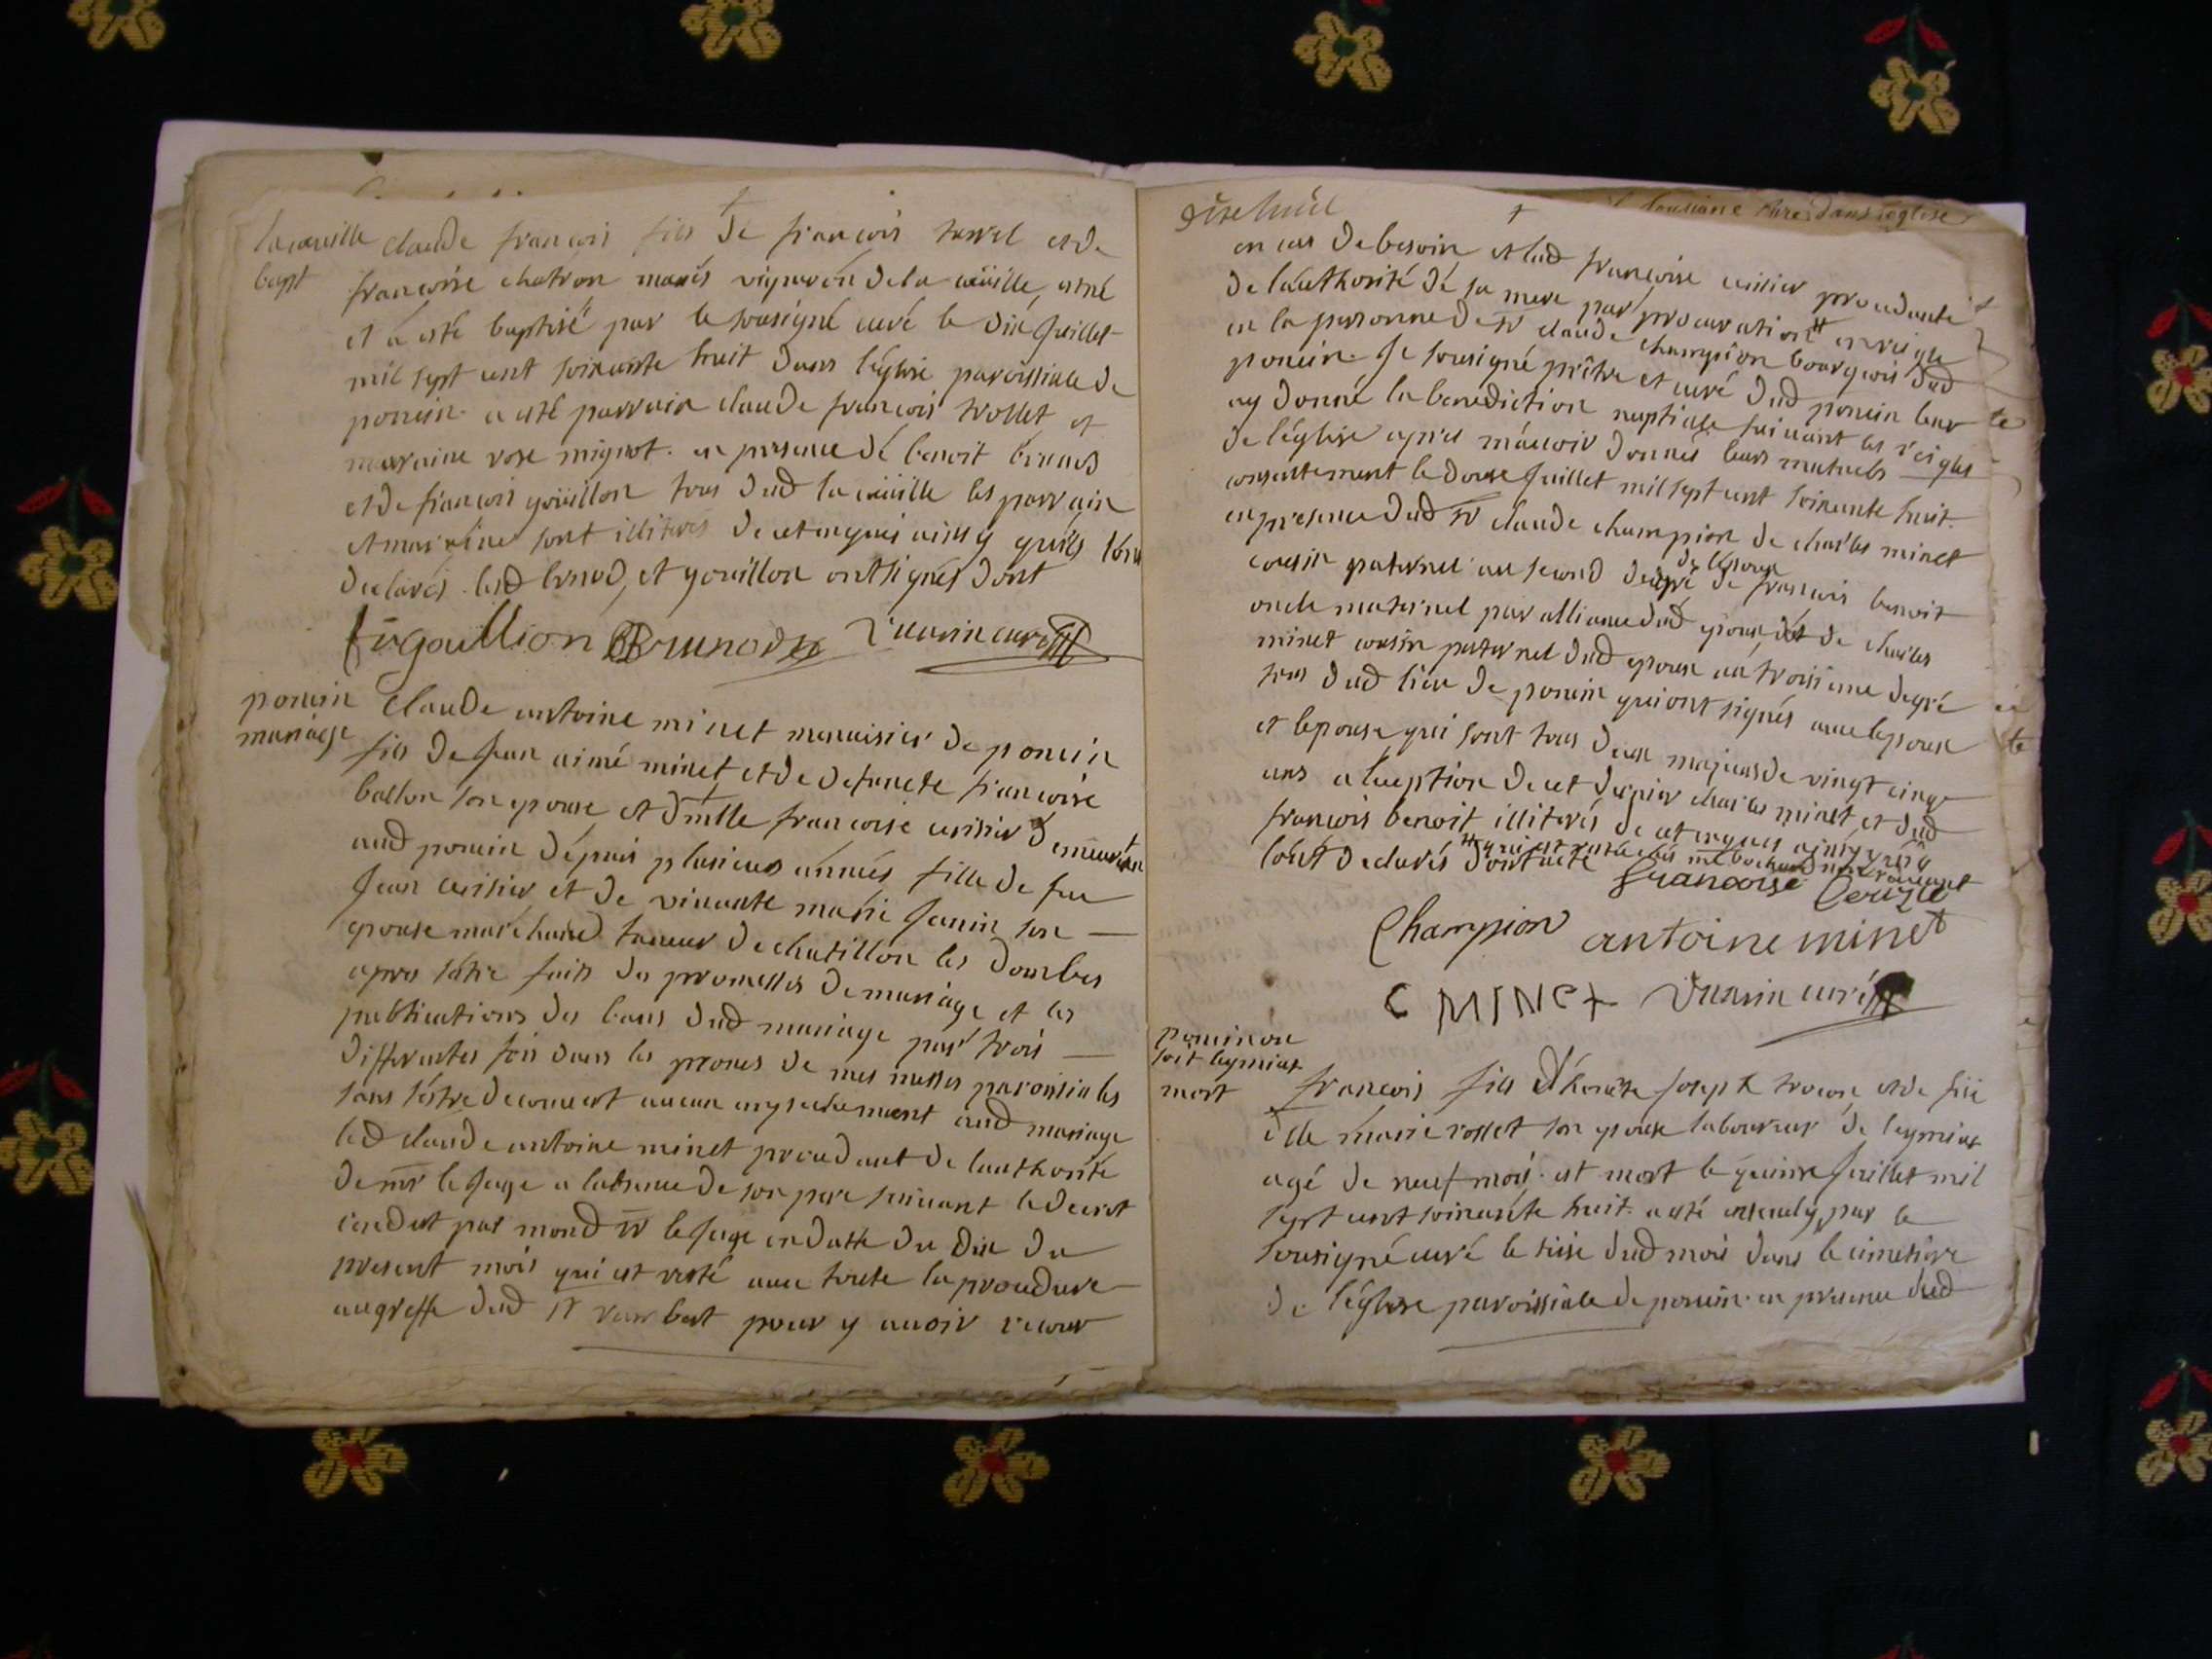 lacueille claude francois fils de francois tarrel et de
bapt francoise chatron mariés vigneron de la cuëille, est né
et a esté baptisé par le sousigné curé le dix juillet
mil sept cent soixante huit dans léglise paroissiale de
poncin. a esté parrain claude francois trollet et
marraine rose mignot. en presence dé benoit brunod
et de francois goüillon tous dud la cuëille les parrain
et marraine sont illiterés de ce enquis ainsy quils lont
declarés. lesd brunod, et gouillon ont signés dont
f goullion Brunod curé
poncin claude antoine minet menuisier de poncin
mariage fils de jean aimé minet et de defuncte francoise
ballon son epouse et dmlle francoise cerisier demeurant
aud poncin dépuis plusieurs années fille de feu
jean cerisier et de vivante marie janin son
epouse marchand taneur de chatillon les dombes
apres sétre faits des promesses de mariage et les
publications des bans dud mariage par trois
differentes fois dans les prones de mes messes paroissiales
sans sétre decouvert aucun empechement aud mariage
led claude antoine minet procedant de lauthorité
de mr le juge a labsence de son pere suivant le decret
rendut par mond sr le juge en datte du dix du
present mois qui est resté avec toute la procedure
au greffe dud sr rambert pour y avoir recour
dixehuit
en cas de besoin et lad francoise cerisier procedante
de láuthorité dé sa mere par procuration en reigle
en la personne de sr claude champion bourgeois dud
poncin. je sousigné prêtre et curé dud poncin leur
ay donné la benediction nuptiale suivant les reigles
de léglise apres mávoir donnés leurs mutuels
consentement le douse juillet mil sept cent soixante huit.
en presence dud sr claude champion de charles minet
cousin paternel au second degré de lepoux de francois benoit
oncle maternel par alliance dud epoux et de charles
minet cousin paternel dud epoux au troisieme degré
tous dud lieu de poncin qui ont signés avec lepoux
et lepouse qui sont tous deux majeurs de vingt cinq
ans a lexception de cet dernier charles minet et dud
francois benoit illiterés de ce enquis ainsy quils
lont declarés dont acte qui est restée
francoise Cerizie
Champion antoine minet
C MINet curé
poncin ou
soit leymiat
mort francois fils d'honête joseph trocon et de
elle marie rosset son epouse laboureur de leymiat
agé de neuf mois. est mort le quinse juillet mil
sept cent soixante huit. a esté ensevely par le
sousigné curé le seise dud mois dans le cimetiere
de léglise paroissiale de poncin. en presence dud